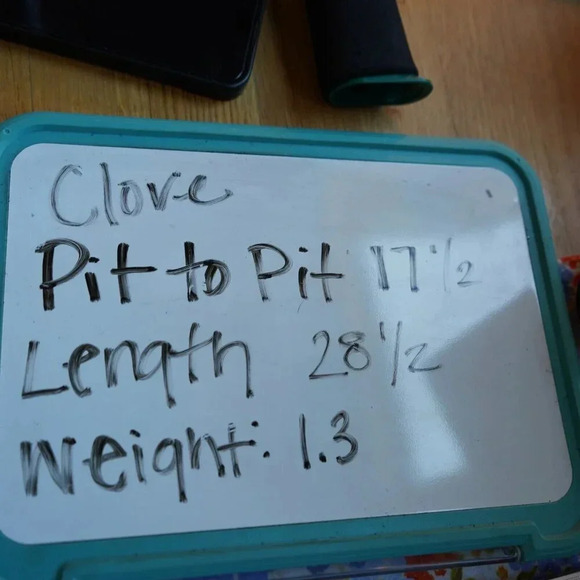 Clove
Pit to Pit 17 1/2
Length 28 1/2
Weight: 1.3